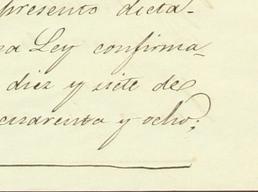 presento dicta-
Ley confirma-
diez y siete de
y ocho;